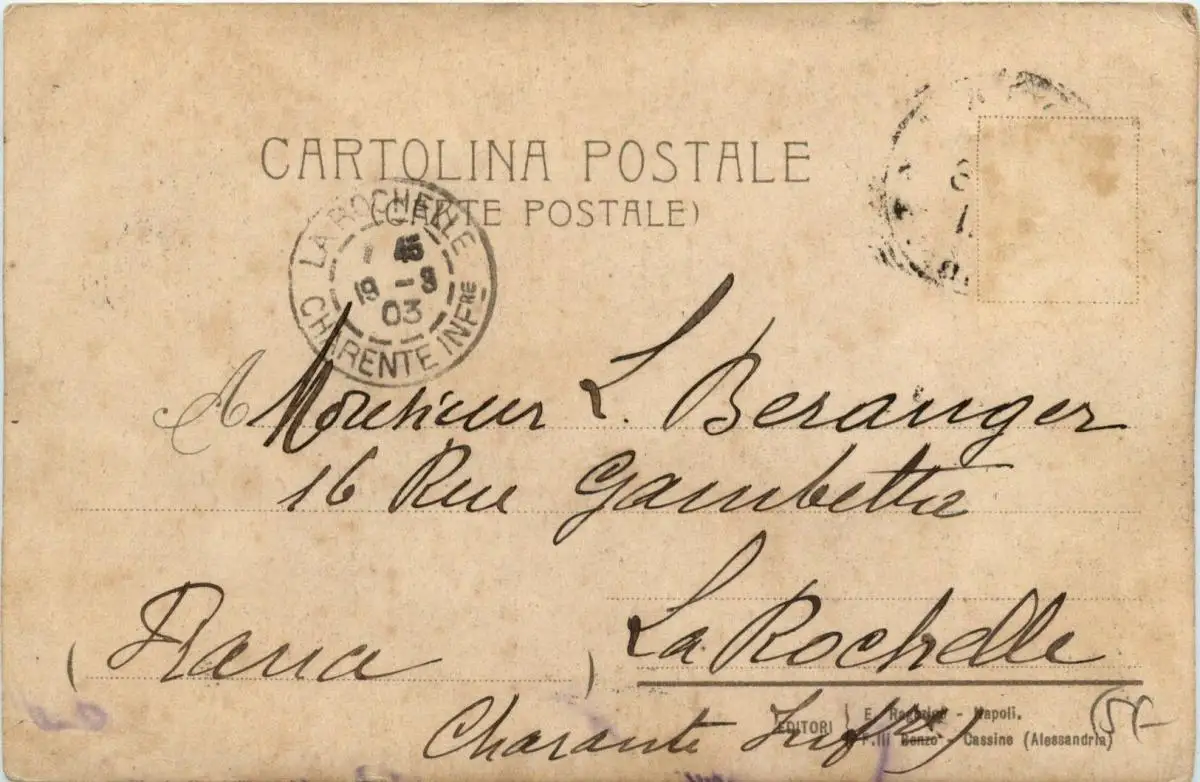 CARTOLINA POSTALE
(CARTE POSTALE)
LA ROCHELLE
1 45
19 - 3
03
CHARENTE INFRE
A Monsieur L. Beranger
16 Rue Gambetta
La Rochelle
(Francia)
Charante Infre)
EDITORI
E. Ragozino - Napoli.
F.lli Benzo - Cassine (Alessandria)